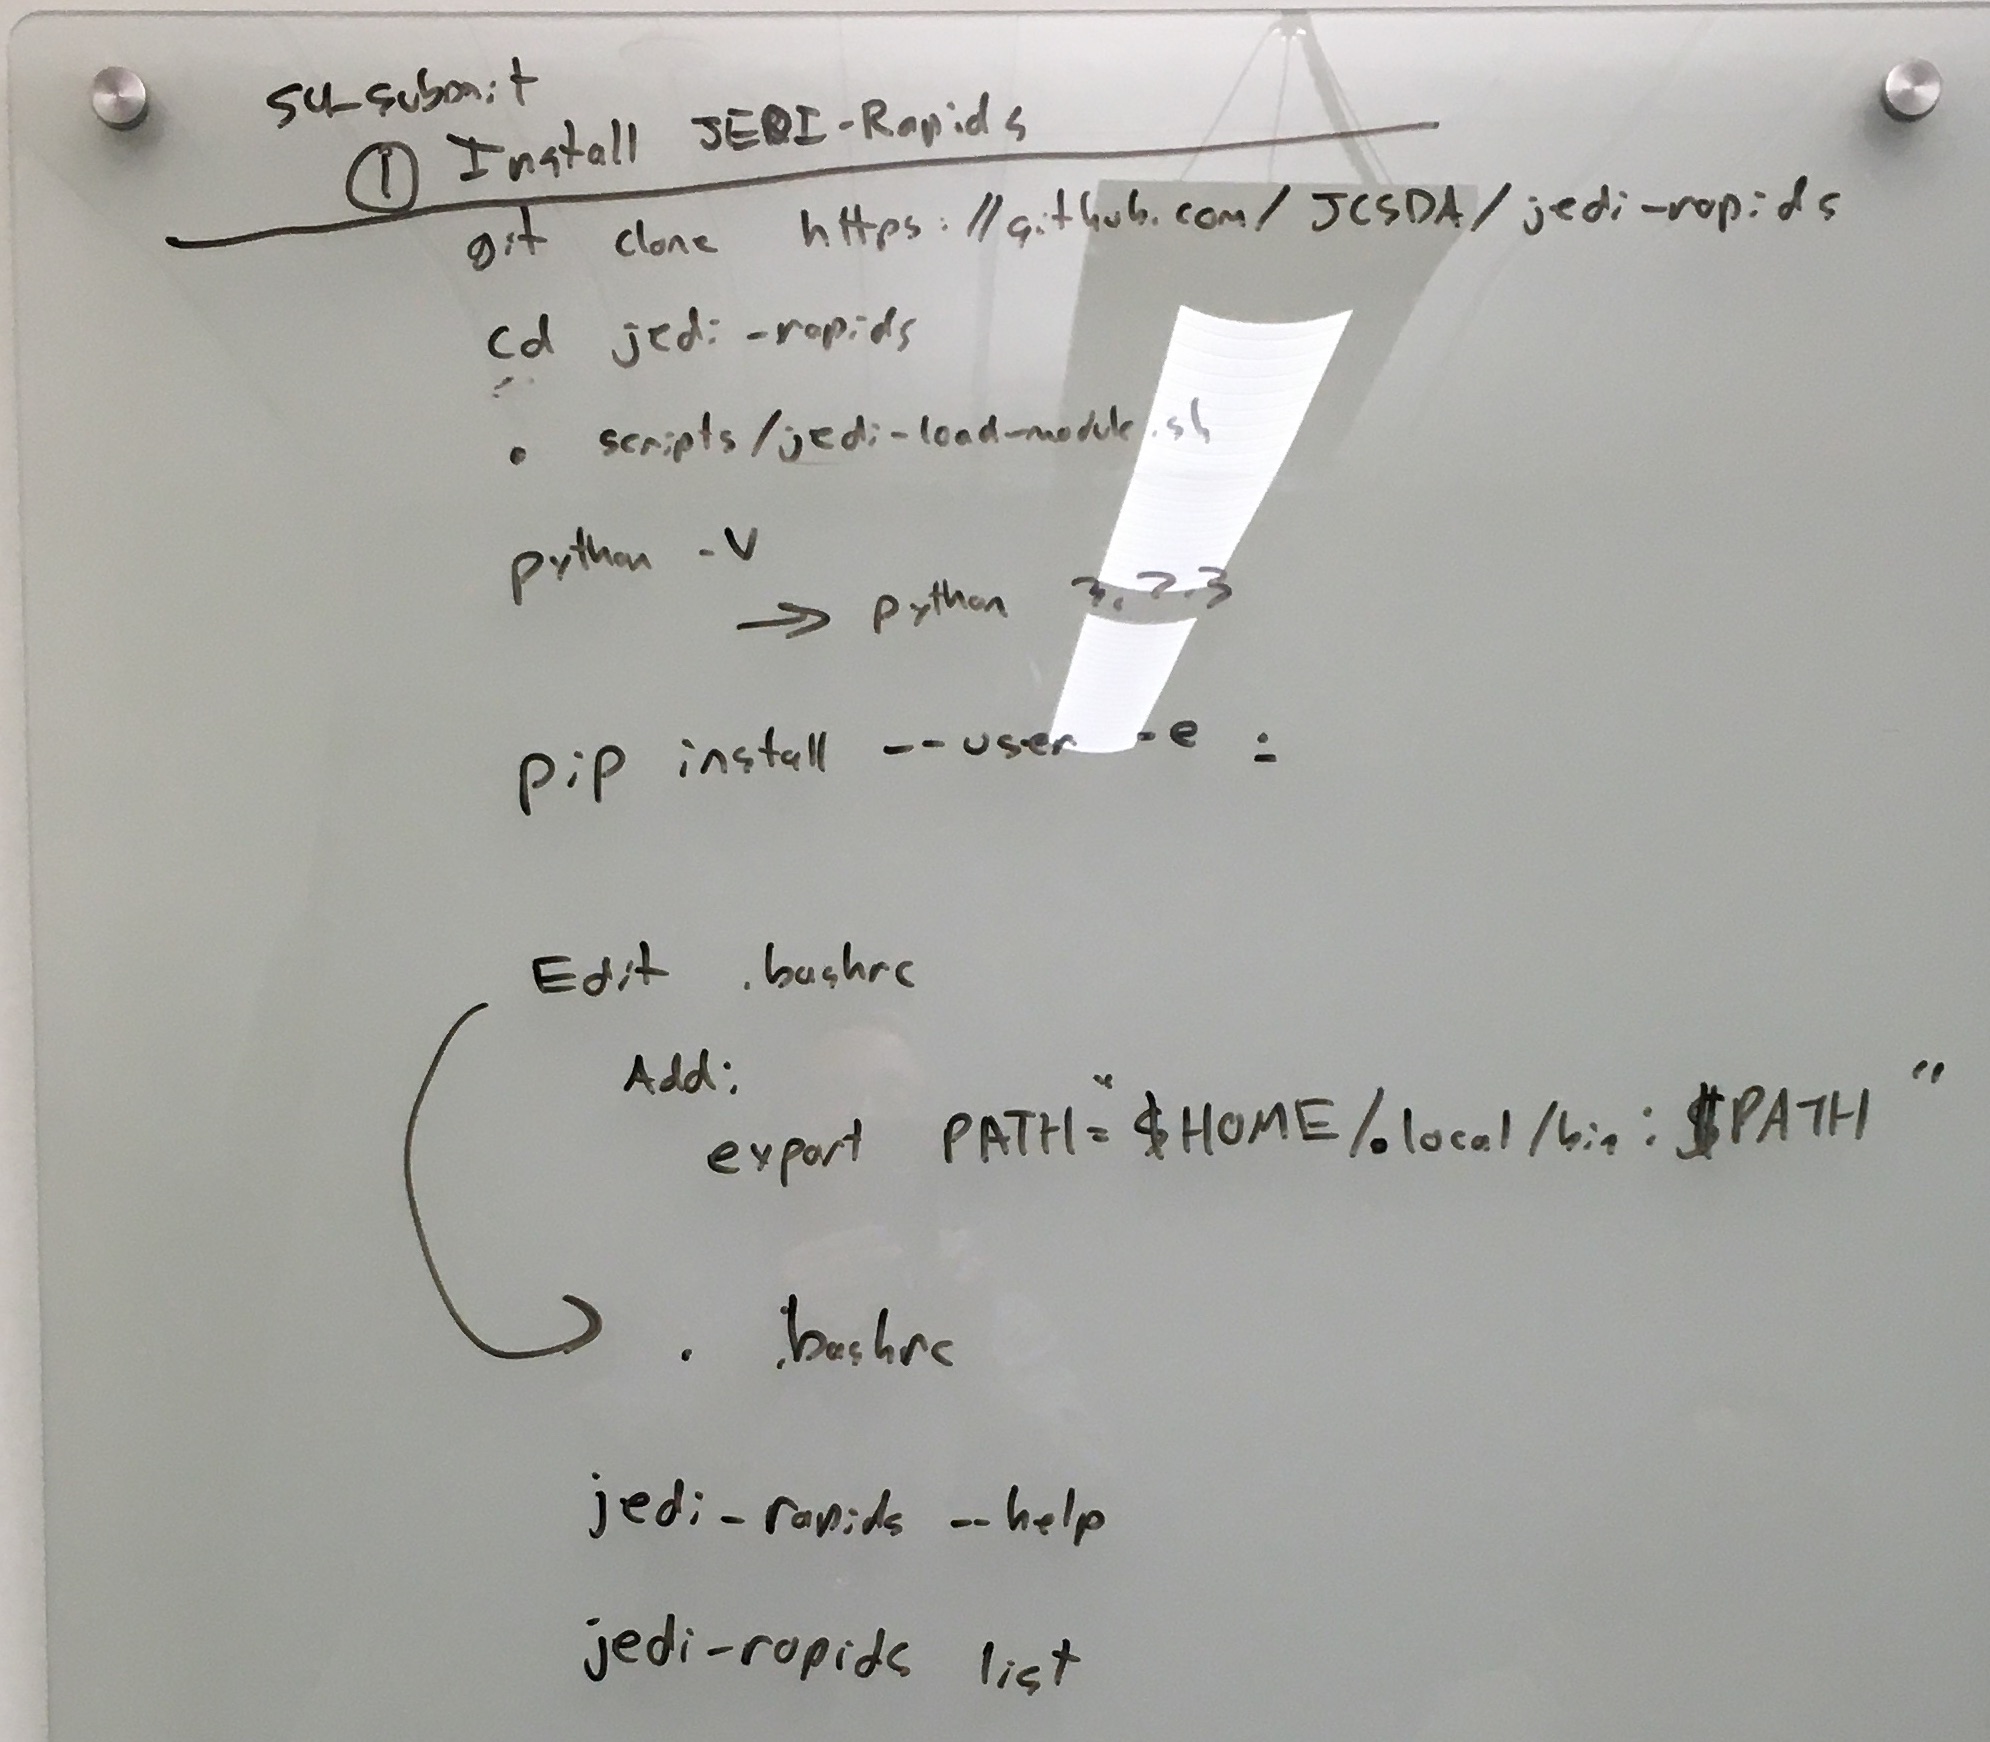 su_submit
① Install JEDI-Rapids
git clone https://github.com/JCSDA/jedi-rapids
cd jedi-rapids
. scripts/jedi-load-module.sh
python -V
→ python 3.7.3
pip install --user -e .
Edit .bashrc
Add:
export PATH="$HOME/.local/bin:$PATH"
. .bashrc
jedi-rapids --help
jedi-rapids list